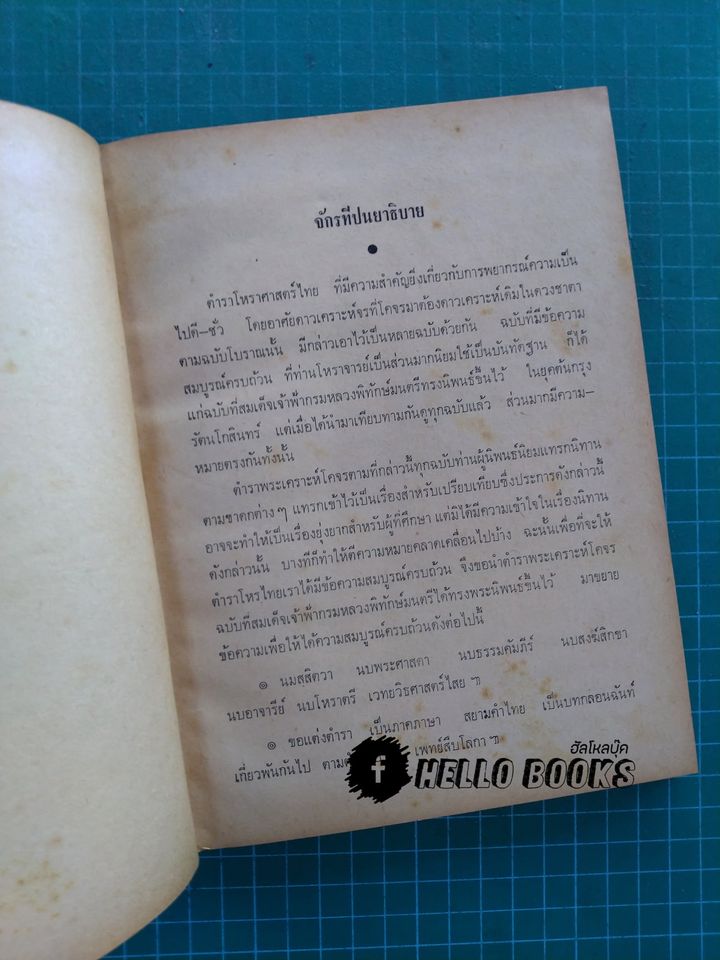 จักรทีปนยาธิบาย
ตำราโหราศาสตร์ไทย ที่มีความสำคัญยิ่งเกี่ยวกับการพยากรณ์ความเป็น
ไปดี–ชั่ว โดยอาศัยดาวเคราะห์จรที่โคจรมาต้องดาวเคราะห์เดิมในดวงชาตา
ตามฉบับโบราณนั้น มีกล่าวเอาไว้เป็นหลายฉบับด้วยกัน ฉบับที่มีข้อความ
สมบูรณ์ครบถ้วน ที่ท่านโหราจารย์เป็นส่วนมากนิยมใช้เป็นบันทัดฐาน ก็ได้
แก่ฉบับที่สมเด็จเจ้าฟ้ากรมหลวงพิทักษ์มนตรีทรงนิพนธ์ขึ้นไว้ ในยุคต้นกรุง
รัตนโกสินทร์ แต่เมื่อได้นำมาเทียบทามกันดูทุกฉบับแล้ว ส่วนมากมีความ–
หมายตรงกันทั้งนั้น
ตำราพระเคราะห์โคจรตามที่กล่าวนี้ทุกฉบับท่านผู้นิพนธ์นิยมแทรกนิทาน
ตามชาดกต่าง ๆ แทรกเข้าไว้เป็นเรื่องสำหรับเปรียบเทียบซึ่งประการดังกล่าวนี้
อาจจะทำให้เป็นเรื่องยุ่งยากสำหรับผู้ที่ศึกษา แต่มิได้มีความเข้าใจในเรื่องนิทาน
ดังกล่าวนั้น บางทีก็ทำให้ตีความหมายคลาดเคลื่อนไปบ้าง ฉะนั้นเพื่อที่จะให้
ตำราโหรไทยเราได้มีข้อความสมบูรณ์ครบถ้วน จึงขอนำตำราพระเคราะห์โคจร
ฉบับที่สมเด็จเจ้าฟ้ากรมหลวงพิทักษ์มนตรีได้ทรงพระนิพนธ์ขึ้นไว้ มาขยาย
ข้อความเพื่อให้ได้ความสมบูรณ์ครบถ้วนดังต่อไปนี้
๏ นมสฺสิตวา นบพระศาสดา นบธรรมคัมภีร์ นบสงฆ์สิกขา
นบอาจารีย์ นบโหราตรี เวทยวิธศาสตร์ไสย ฯ
๏ ขอแต่งตำรา เป็นภาคภาษา สยามคำไทย เป็นบทกลอนฉันท์
เกี่ยวพันกันไป เพทย์สืบโลกา ฯ
ฮัลโหลบุ๊ค
f HELLO BOOKS